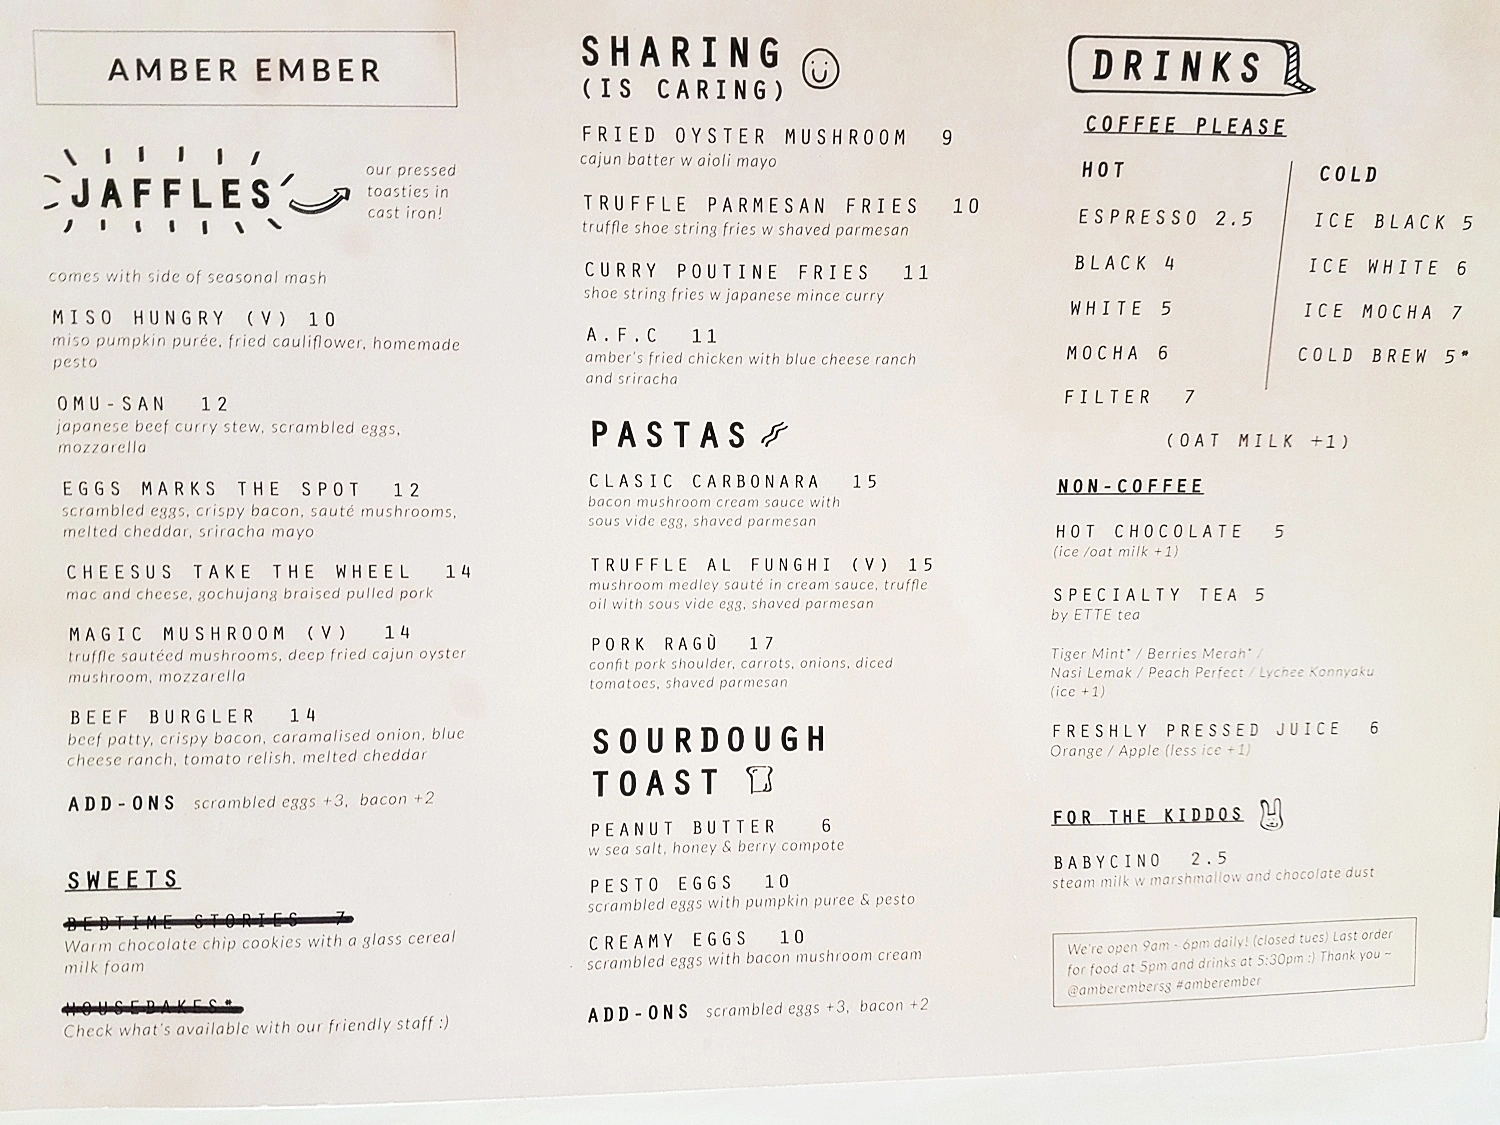 AMBER EMBER
JAFFLES
our pressed
toasties in
cast iron!
comes with side of seasonal mash
MISO HUNGRY (V) 10
miso pumpkin purée, fried cauliflower, homemade
pesto
OMU-SAN 12
japanese beef curry stew, scrambled eggs,
mozzarella
EGGS MARKS THE SPOT 12
scrambled eggs, crispy bacon, sauté mushrooms,
melted cheddar, sriracha mayo
CHEESUS TAKE THE WHEEL 14
mac and cheese, gochujang braised pulled pork
MAGIC MUSHROOM (V) 14
truffle sautéed mushrooms, deep fried cajun oyster
mushroom, mozzarella
BEEF BURGLER 14
beef patty, crispy bacon, caramalised onion, blue
cheese ranch, tomato relish, melted cheddar
ADD-ONS scrambled eggs +3, bacon +2
SWEETS
BEDTIME STORIES 7
Warm chocolate chip cookies with a glass cereal
milk foam
HOUSEBAKES*
Check what's available with our friendly staff :)
SHARING
(IS CARING)
FRIED OYSTER MUSHROOM 9
cajun batter w aioli mayo
TRUFFLE PARMESAN FRIES 10
truffle shoe string fries w shaved parmesan
CURRY POUTINE FRIES 11
shoe string fries w japanese mince curry
A.F.C 11
amber's fried chicken with blue cheese ranch
and sriracha
PASTAS
CLASIC CARBONARA 15
bacon mushroom cream sauce with
sous vide egg, shaved parmesan
TRUFFLE AL FUNGHI (V) 15
mushroom medley sauté in cream sauce, truffle
oil with sous vide egg, shaved parmesan
PORK RAGÙ 17
confit pork shoulder, carrots, onions, diced
tomatoes, shaved parmesan
SOURDOUGH
TOAST
PEANUT BUTTER 6
w sea salt, honey & berry compote
PESTO EGGS 10
scrambled eggs with pumpkin puree & pesto
CREAMY EGGS 10
scrambled eggs with bacon mushroom cream
ADD-ONS scrambled eggs +3, bacon +2
DRINKS
COFFEE PLEASE
HOT
ESPRESSO 2.5
BLACK 4
WHITE 5
MOCHA 6
FILTER 7
COLD
ICE BLACK 5
ICE WHITE 6
ICE MOCHA 7
COLD BREW 5*
(OAT MILK +1)
NON-COFFEE
HOT CHOCOLATE 5
(ice /oat milk +1)
SPECIALTY TEA 5
by ETTE tea
Tiger Mint* / Berries Merah* /
Nasi Lemak / Peach Perfect / Lychee Konnyaku
(ice +1)
FRESHLY PRESSED JUICE 6
Orange / Apple (less ice +1)
FOR THE KIDDOS
BABYCINO 2.5
steam milk w marshmallow and chocolate dust
We're open 9am - 6pm daily! (closed tues) Last order
for food at 5pm and drinks at 5:30pm :) Thank you ~
@amberembersg #amberember